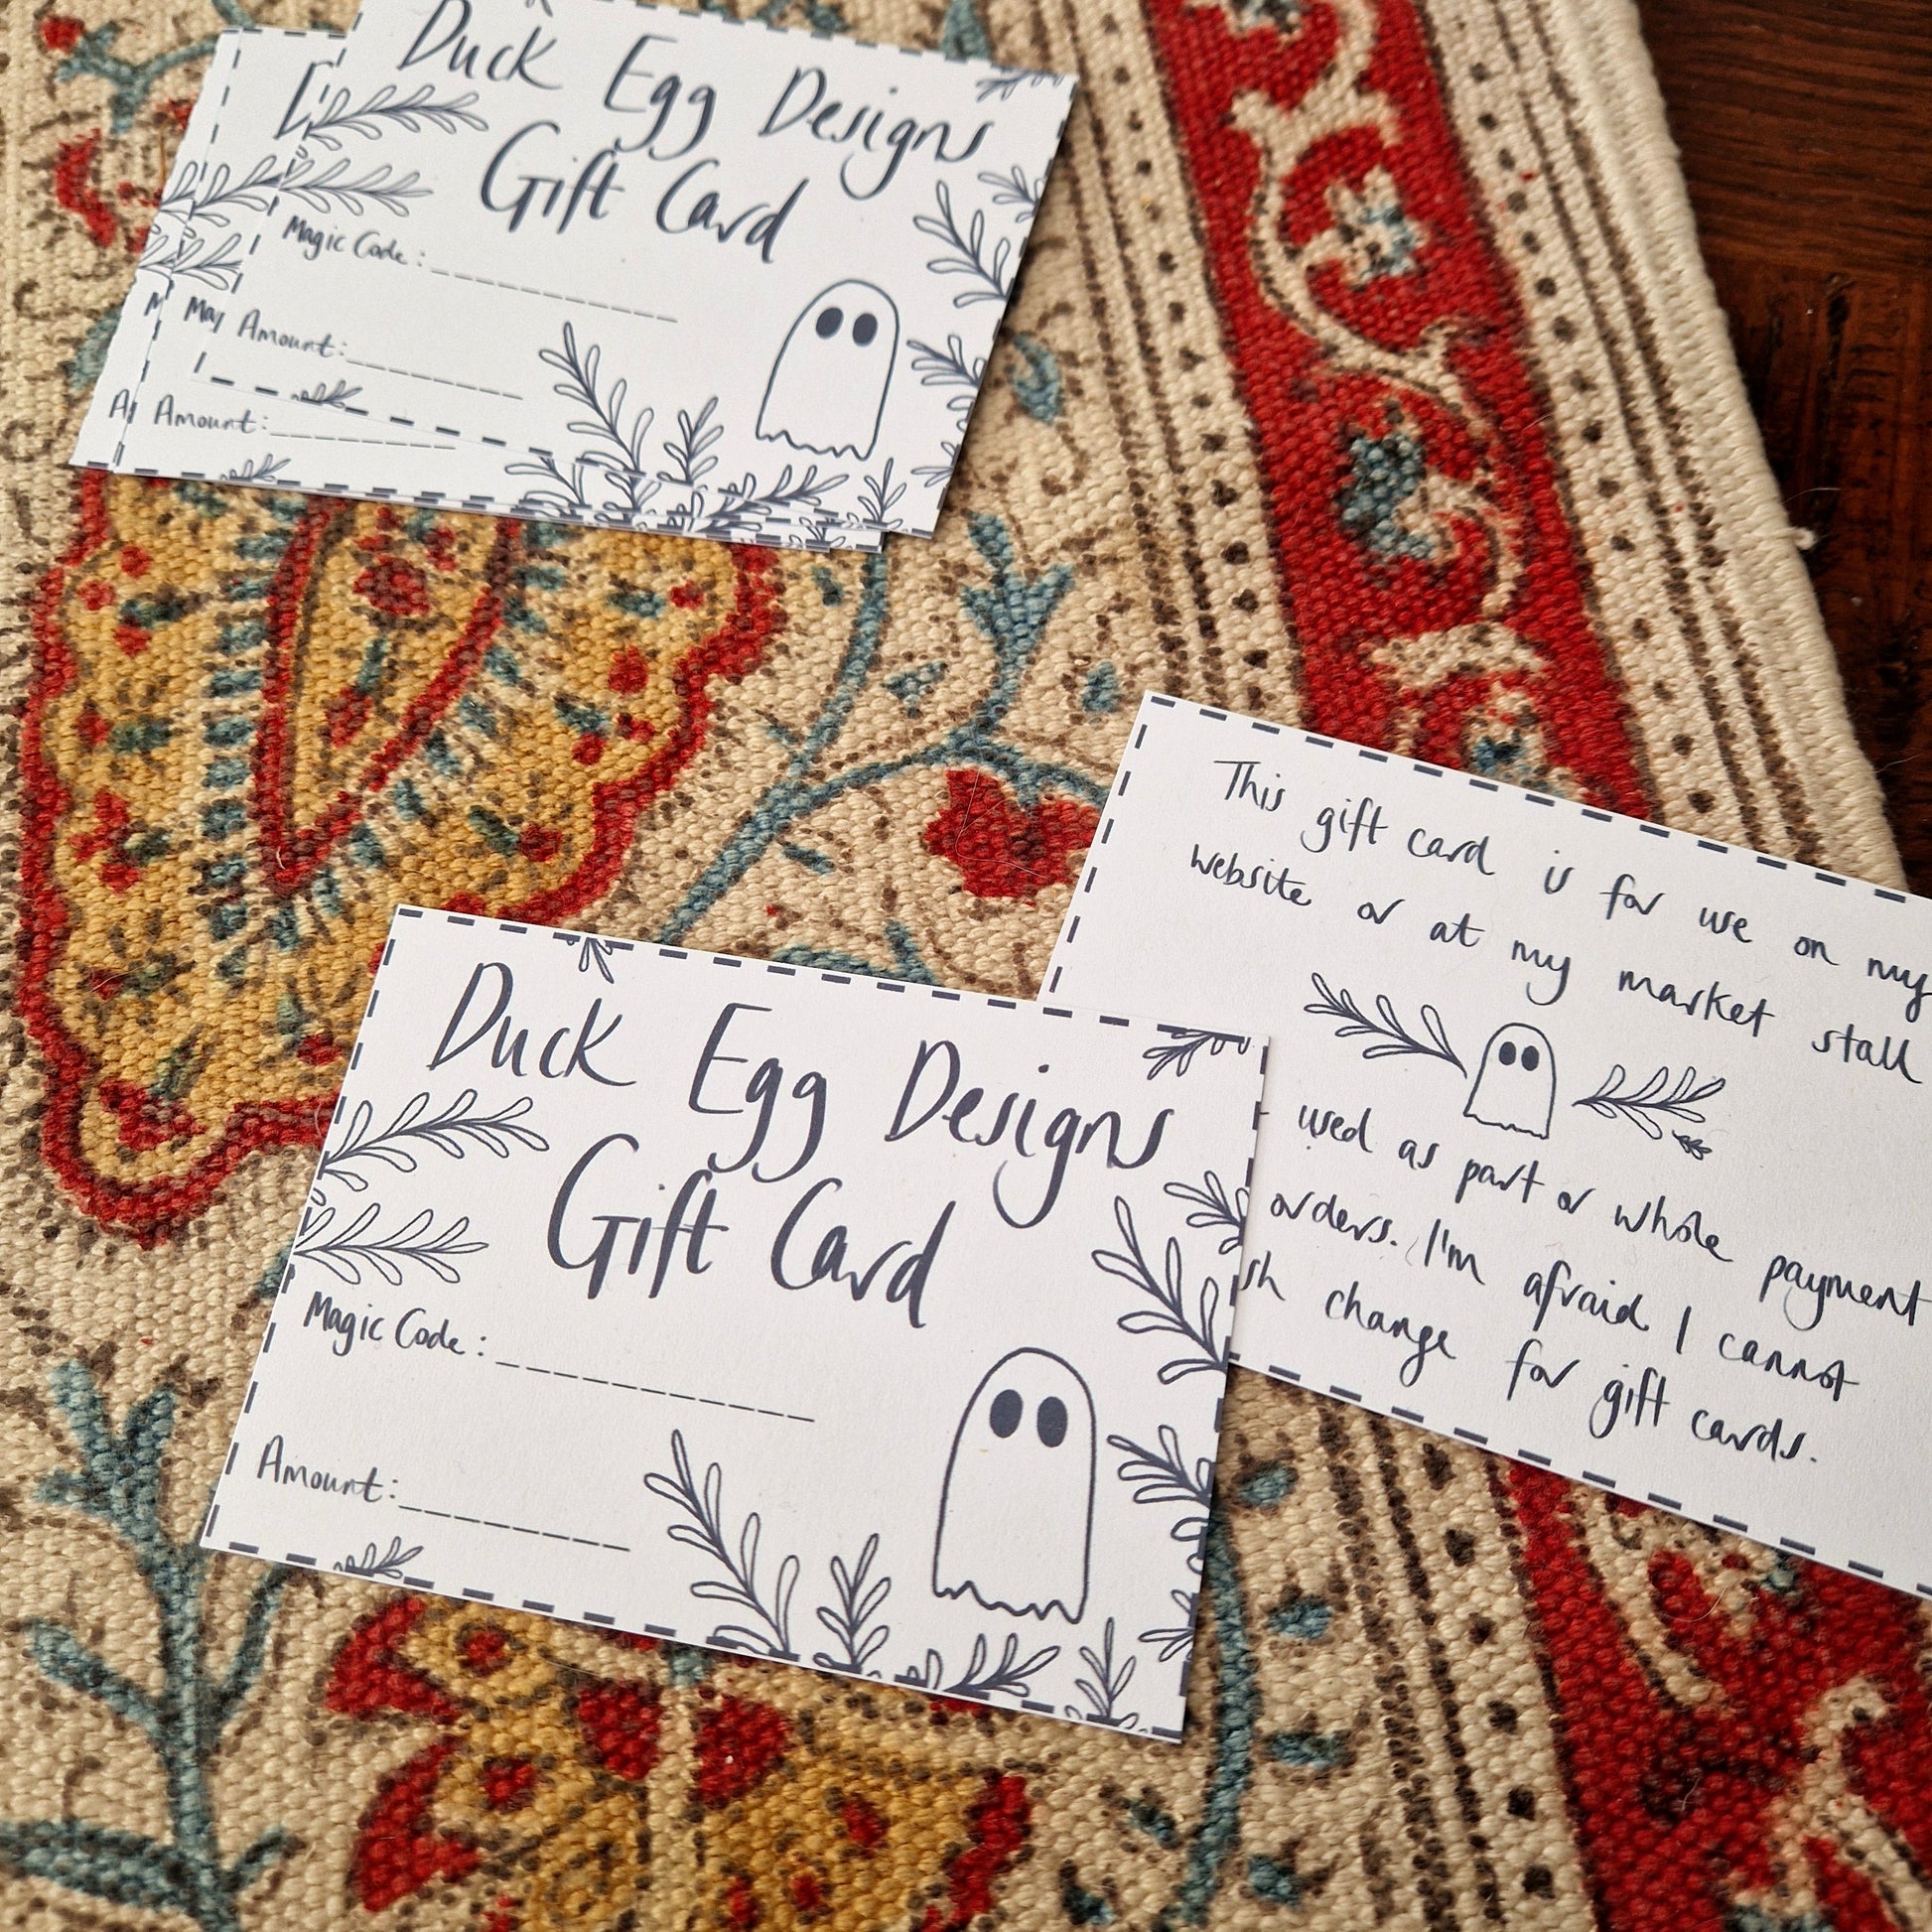 Duck Egg Designs
Gift Card
Magic Code:
Amount:
Amount:
Duck Egg Designs
Gift Card
Magic Code:
Amount:
This gift card is for use on my
website or at my market stall
used as part or whole payment
orders. I'm afraid I cannot
change for gift cards.